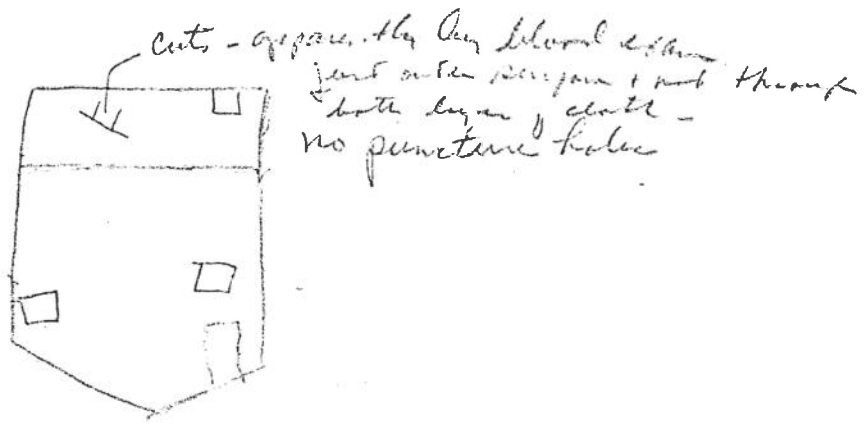 cuts - apparently by blood exam
just outer surface & not through
both layers of cloth -
no puncture holes